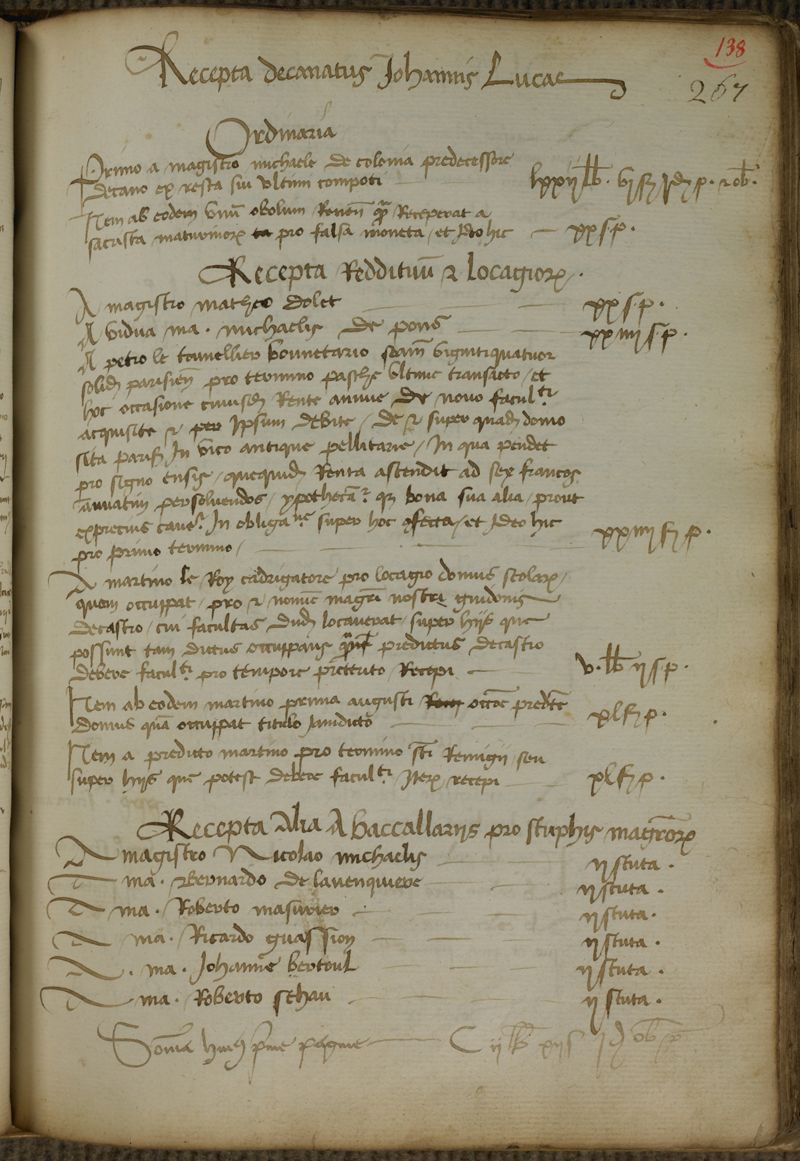 138
267
Recepta decanatus Johannis Lucae
Ordinaria
Primo a magistro michaele de colonia predecessore
decano ex resta sui ultimi compoti lxxii lb. vj s. j d. p. 2 ob.
Item ab eodem unu obolum Renen q Receperat a
sacrista maturinorz pro falsa moneta / et Ideo hic xx s. p.
Recepta Reddituu 2 locagiorz.
A magistro matheo dolet xx s. p.
A vidua ma. michaelis de pons xxiiij s. p.
A petro le tonnellier bonnetario viginti quatuor
solid parisien pro termino pasche ultime transacto / et
hoc occasione Rente annue de novo facult
acquisite 2 per Ipsum debite / de 2 super quad domo
sita paris In vico antique pellitarie / In qua pendet
pro signo ensis / quequid Renta ascendit ad sex francos
annuatim persolvendos / bona sua alia / prout
In obliga super hoc / et Ideo hic
pro primo termino / xxiiij s. p.
A martino le Roy cadrigatore pro locagio domus scolarz /
quem occuppat / pro 2 magri nostri guidonis
decastro / cui facultas dud locaverat / super hijs que
possunt tam dictus occuppans predictus decastro
debere facult pro tempore preterito / Recepi v. lb ij s. p.
Item ab eodem martino prima augusti
domus qua occuppat titulo xl s. p.
Item a predicto martino pro termino sti Remigij / seu
super hijs que potest debere facult / recepi xl s. p.
Recepta Alia A baccallariis pro stuphis magrorz
A magistro Nicolao michaelis ij scuta.
A ma. Bernardo de lavenquiere ij scuta.
A ma. Roberto masurier ij scuta.
A ma. Ricardo guassion ij scuta.
A. ma. Johanne bertoul ij scuta.
A ma. Roberto ij scuta.
Soma pagine C ij lb xij s j d ob p